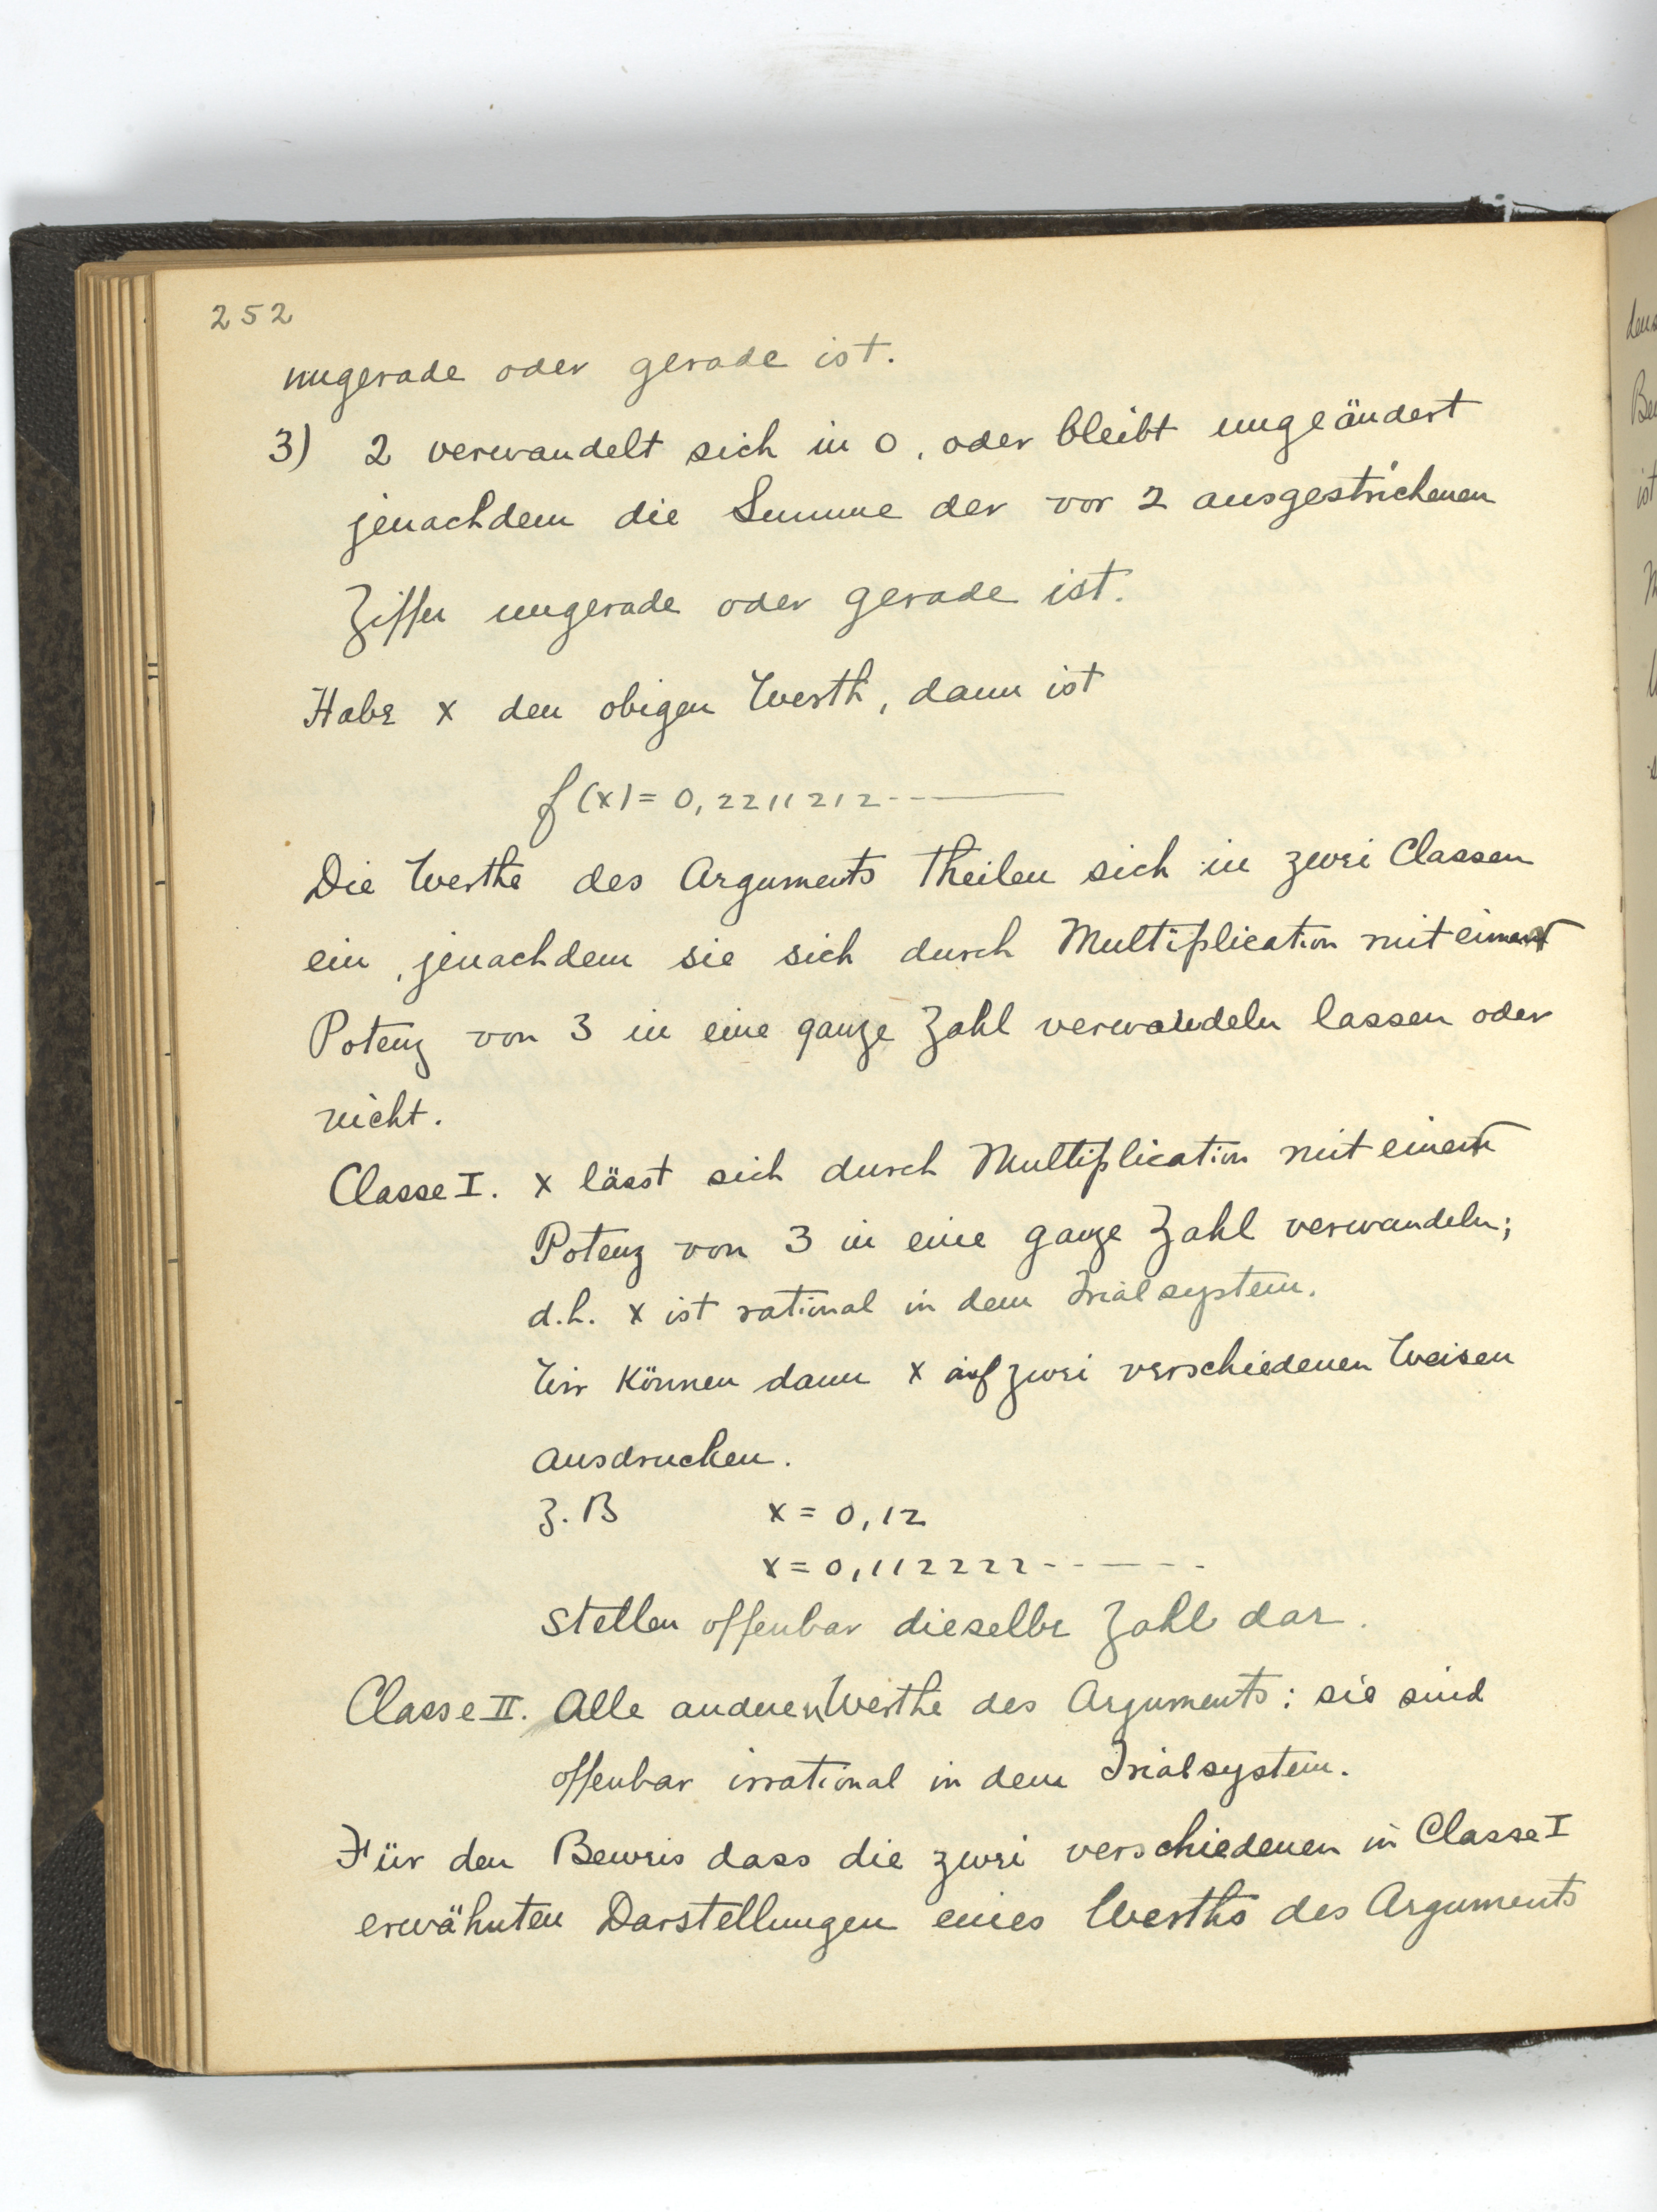 252
ungerade oder gerade ist.
3) 2 verwandelt sich in 0, oder bleibt ungeändert
jenachdem die Summe der vor 2 ausgestrichenen
Ziffer ungerade oder gerade ist.
Habe x den obigen Werth, dann ist
f(x) = 0,2211212-----
Die Werthe des Arguments theilen sich in zwei Classen
ein, jenachdem sie sich durch Multiplication mit einer
Potenz von 3 in eine ganze Zahl verwandeln lassen oder
nicht.
Classe I. x lässt sich durch Multiplication mit einer
Potenz von 3 in eine ganze Zahl verwandeln;
d.h. x ist rational in dem Trialsystem.
Wir können dann x auf zwei verschiedenen Weisen
ausdrucken.
Z.B x = 0,12
x = 0,112222------
stellen offenbar dieselbe Zahl dar.
Classe II. Alle anderen Werthe des Arguments: sie sind
offenbar irrational in dem Trialsystem.
Für den Beweis dass die zwei verschiedenen in Classe I
erwähnten Darstellungen eines Werths des Arguments